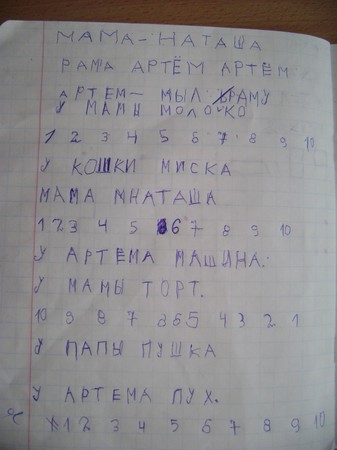 МАМА-НАТАША
РАМА АРТЁМ АРТЁМ
АРТЕМ— МЫЛ РАМУ
У МАМЫ МОЛОКО
1 2 3 4 5 6 7 8 9 10
У КОШКИ МИСКА
МАМА МНАТАША
1 2 3 4 5 6 7 8 9 10
У АРТЕМА МАШИНА.
У МАМЫ ТОРТ.
10 9 8 7 6 5 4 3 2 1
У ПАПЫ ПУШКА
У АРТЕМА ПУХ.
1 2 3 4 5 6 7 8 9 10